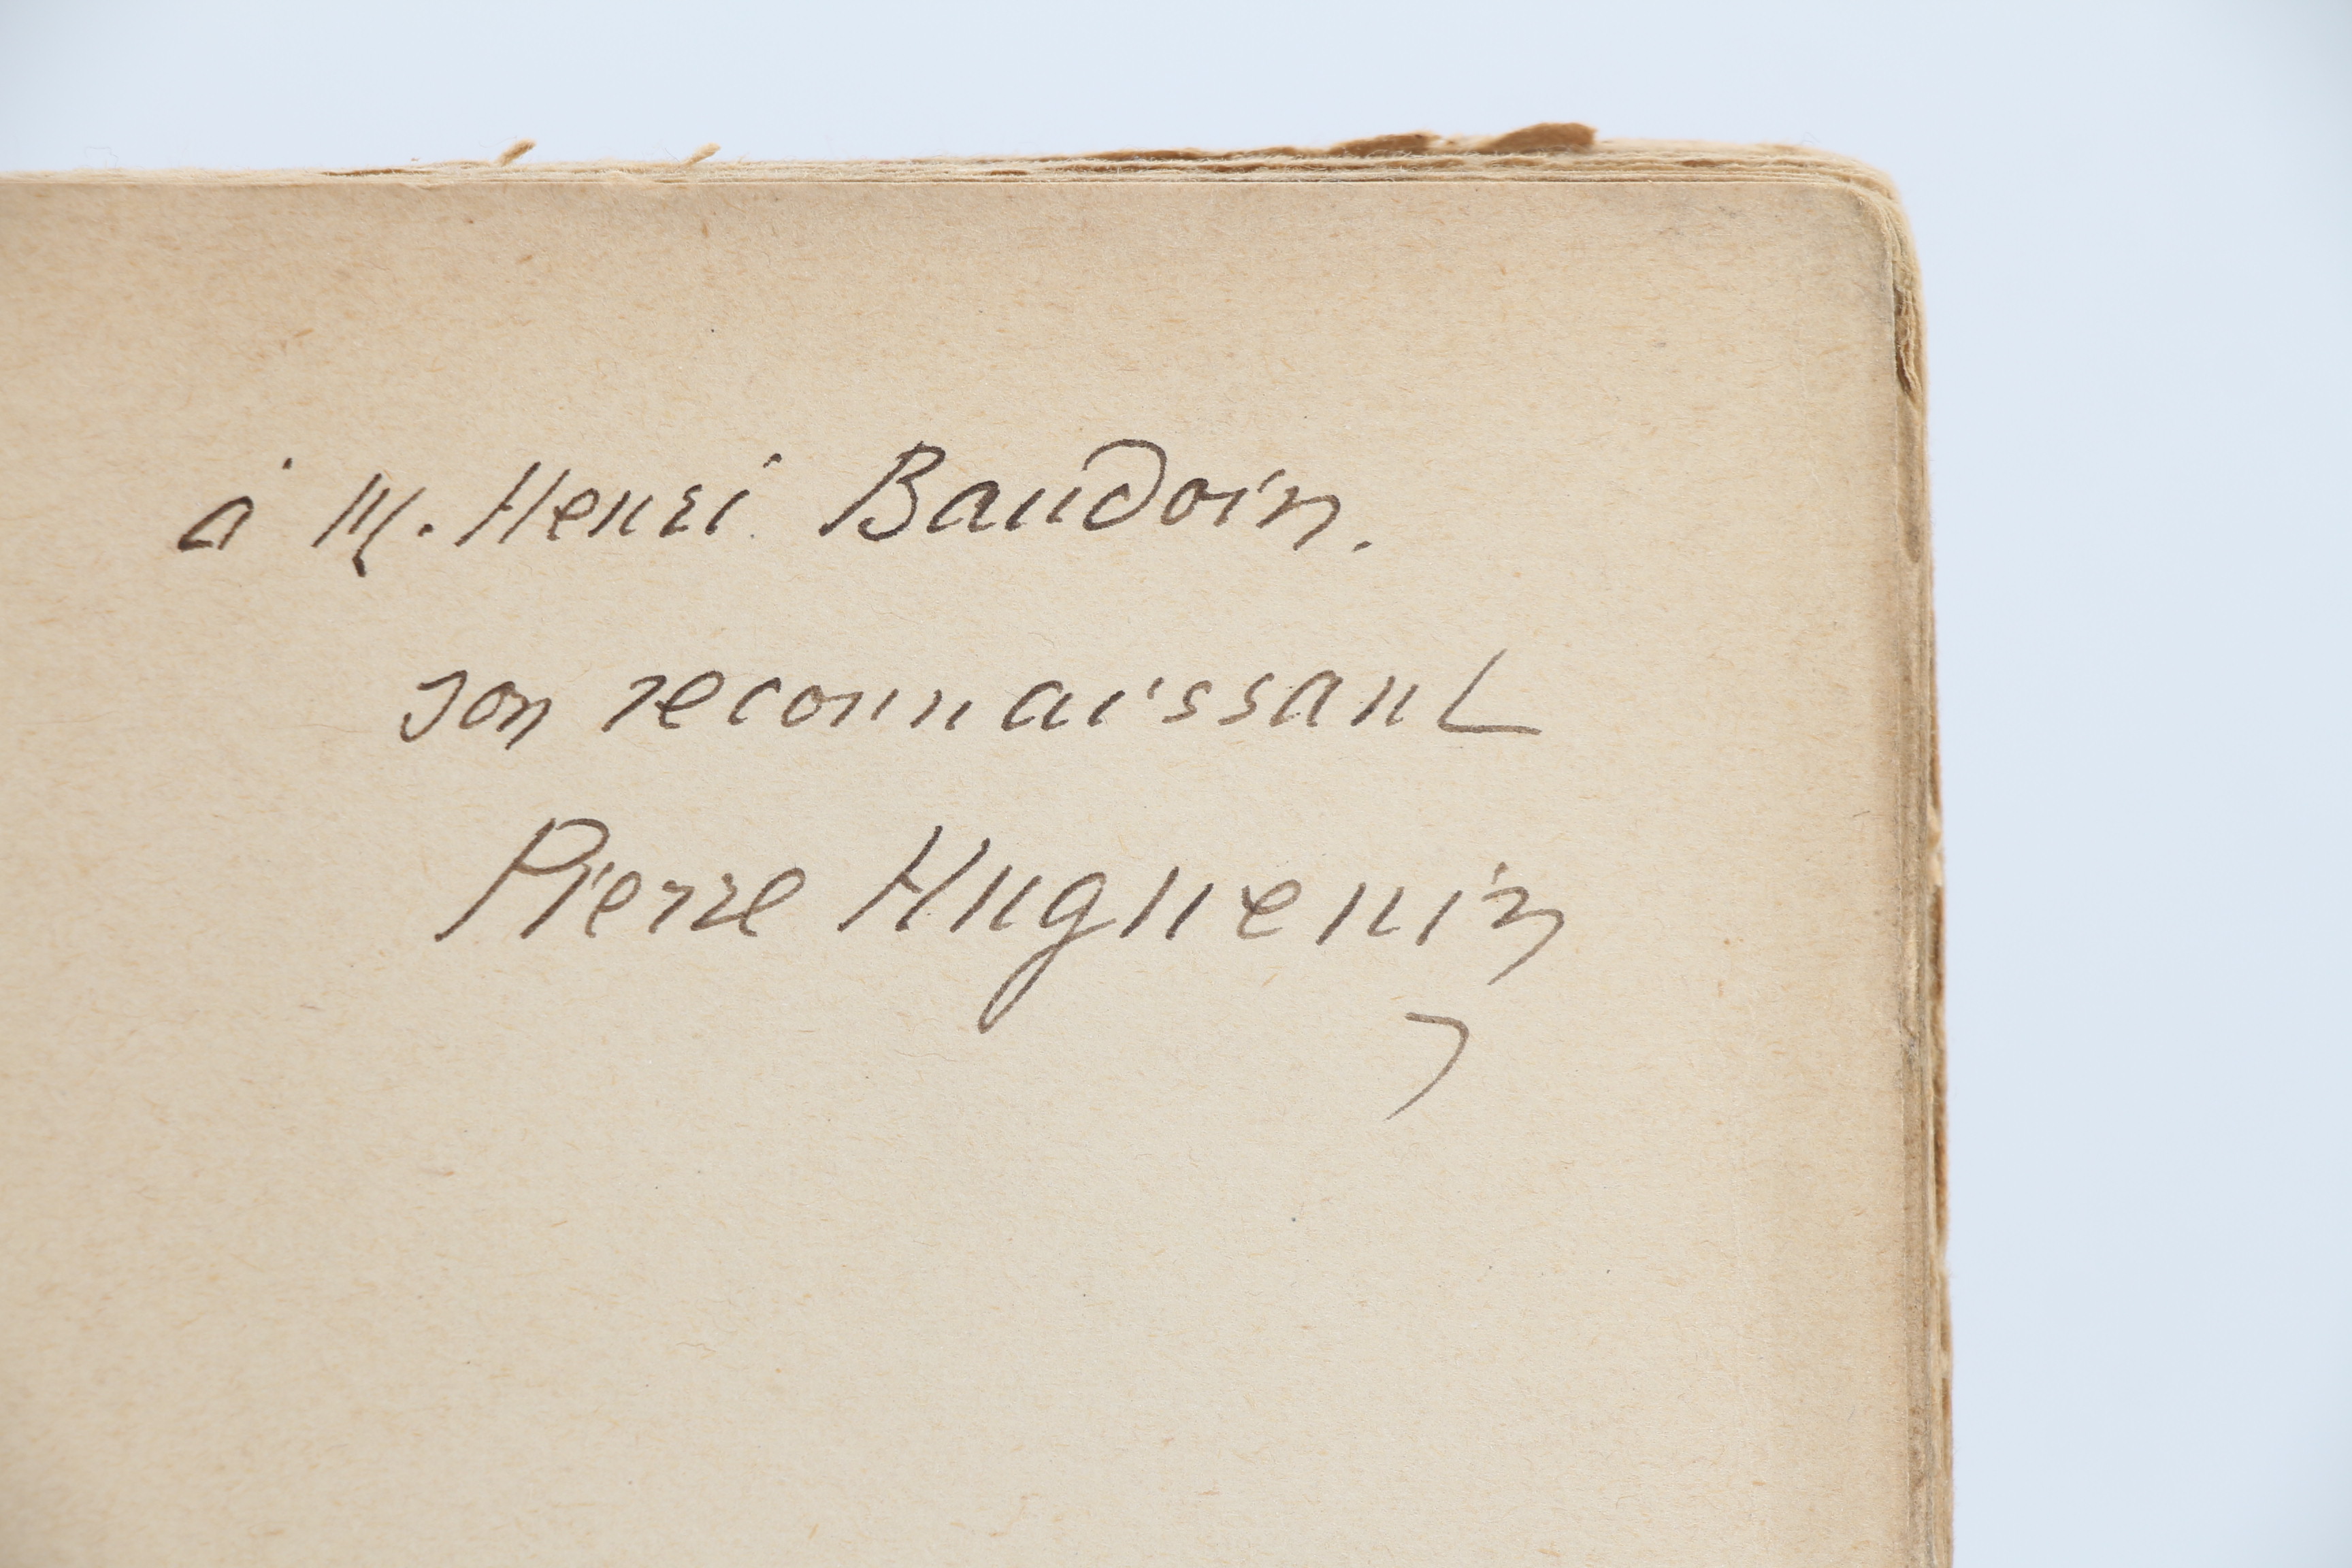 à M. Henri Baudoin.
son reconnaissant
Pierre Huguenin